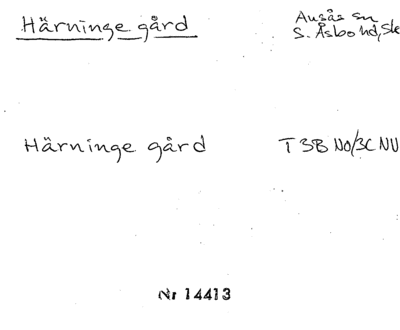 Härninge gård
Ausås sn
S. Åsbo hd, Sk
Härninge gård
T 3B NO/3C NV
Nr 14413